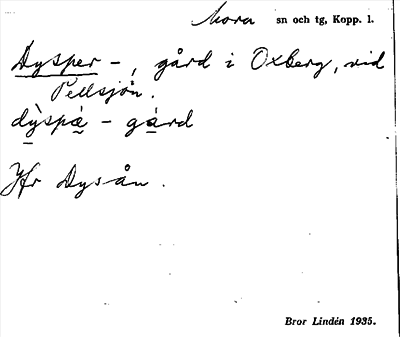 Mora sn och tg, Kopp. l.
Dysper -, gård i Oxberg, vid
Pellsjön.
dỳ̱spä̱̀ - gà̱rd
Jfr Dysån.
Bror Lindén 1935.